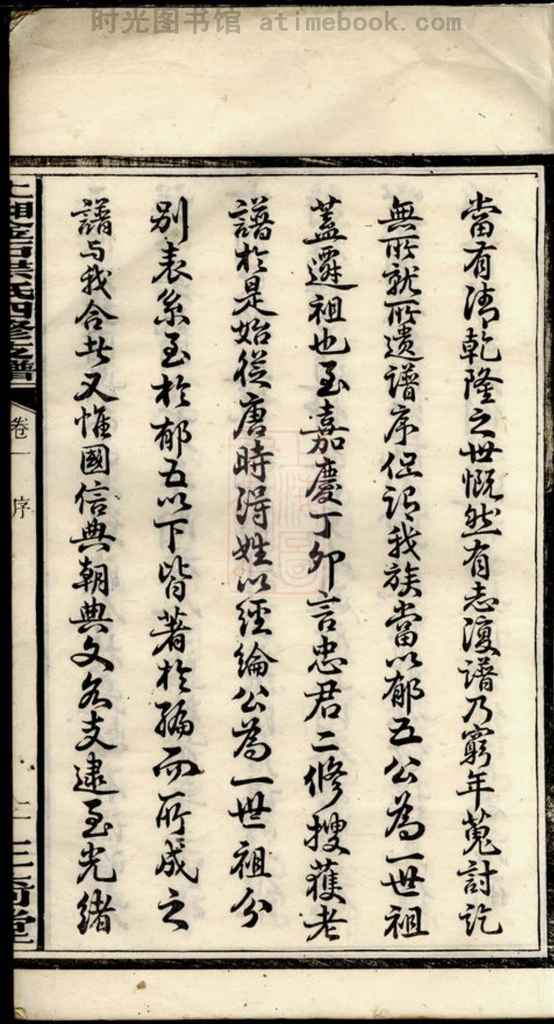 时光图书馆 atimebook.com
當有清乾隆之世慨然有志復譜乃窮年蒐討訖
無所就所遺譜序但謂我族當以郁五公為一世祖
蓋遷祖也至嘉慶丁卯言忠君二修搜獲老
譜於是始從唐時得姓以經綸公為一世祖分
別表系至於郁五以下皆著於編而所成之
譜與我合者又惟國信典朝典文各支逮至光緒
上湘 氏四修支譜
卷一 序